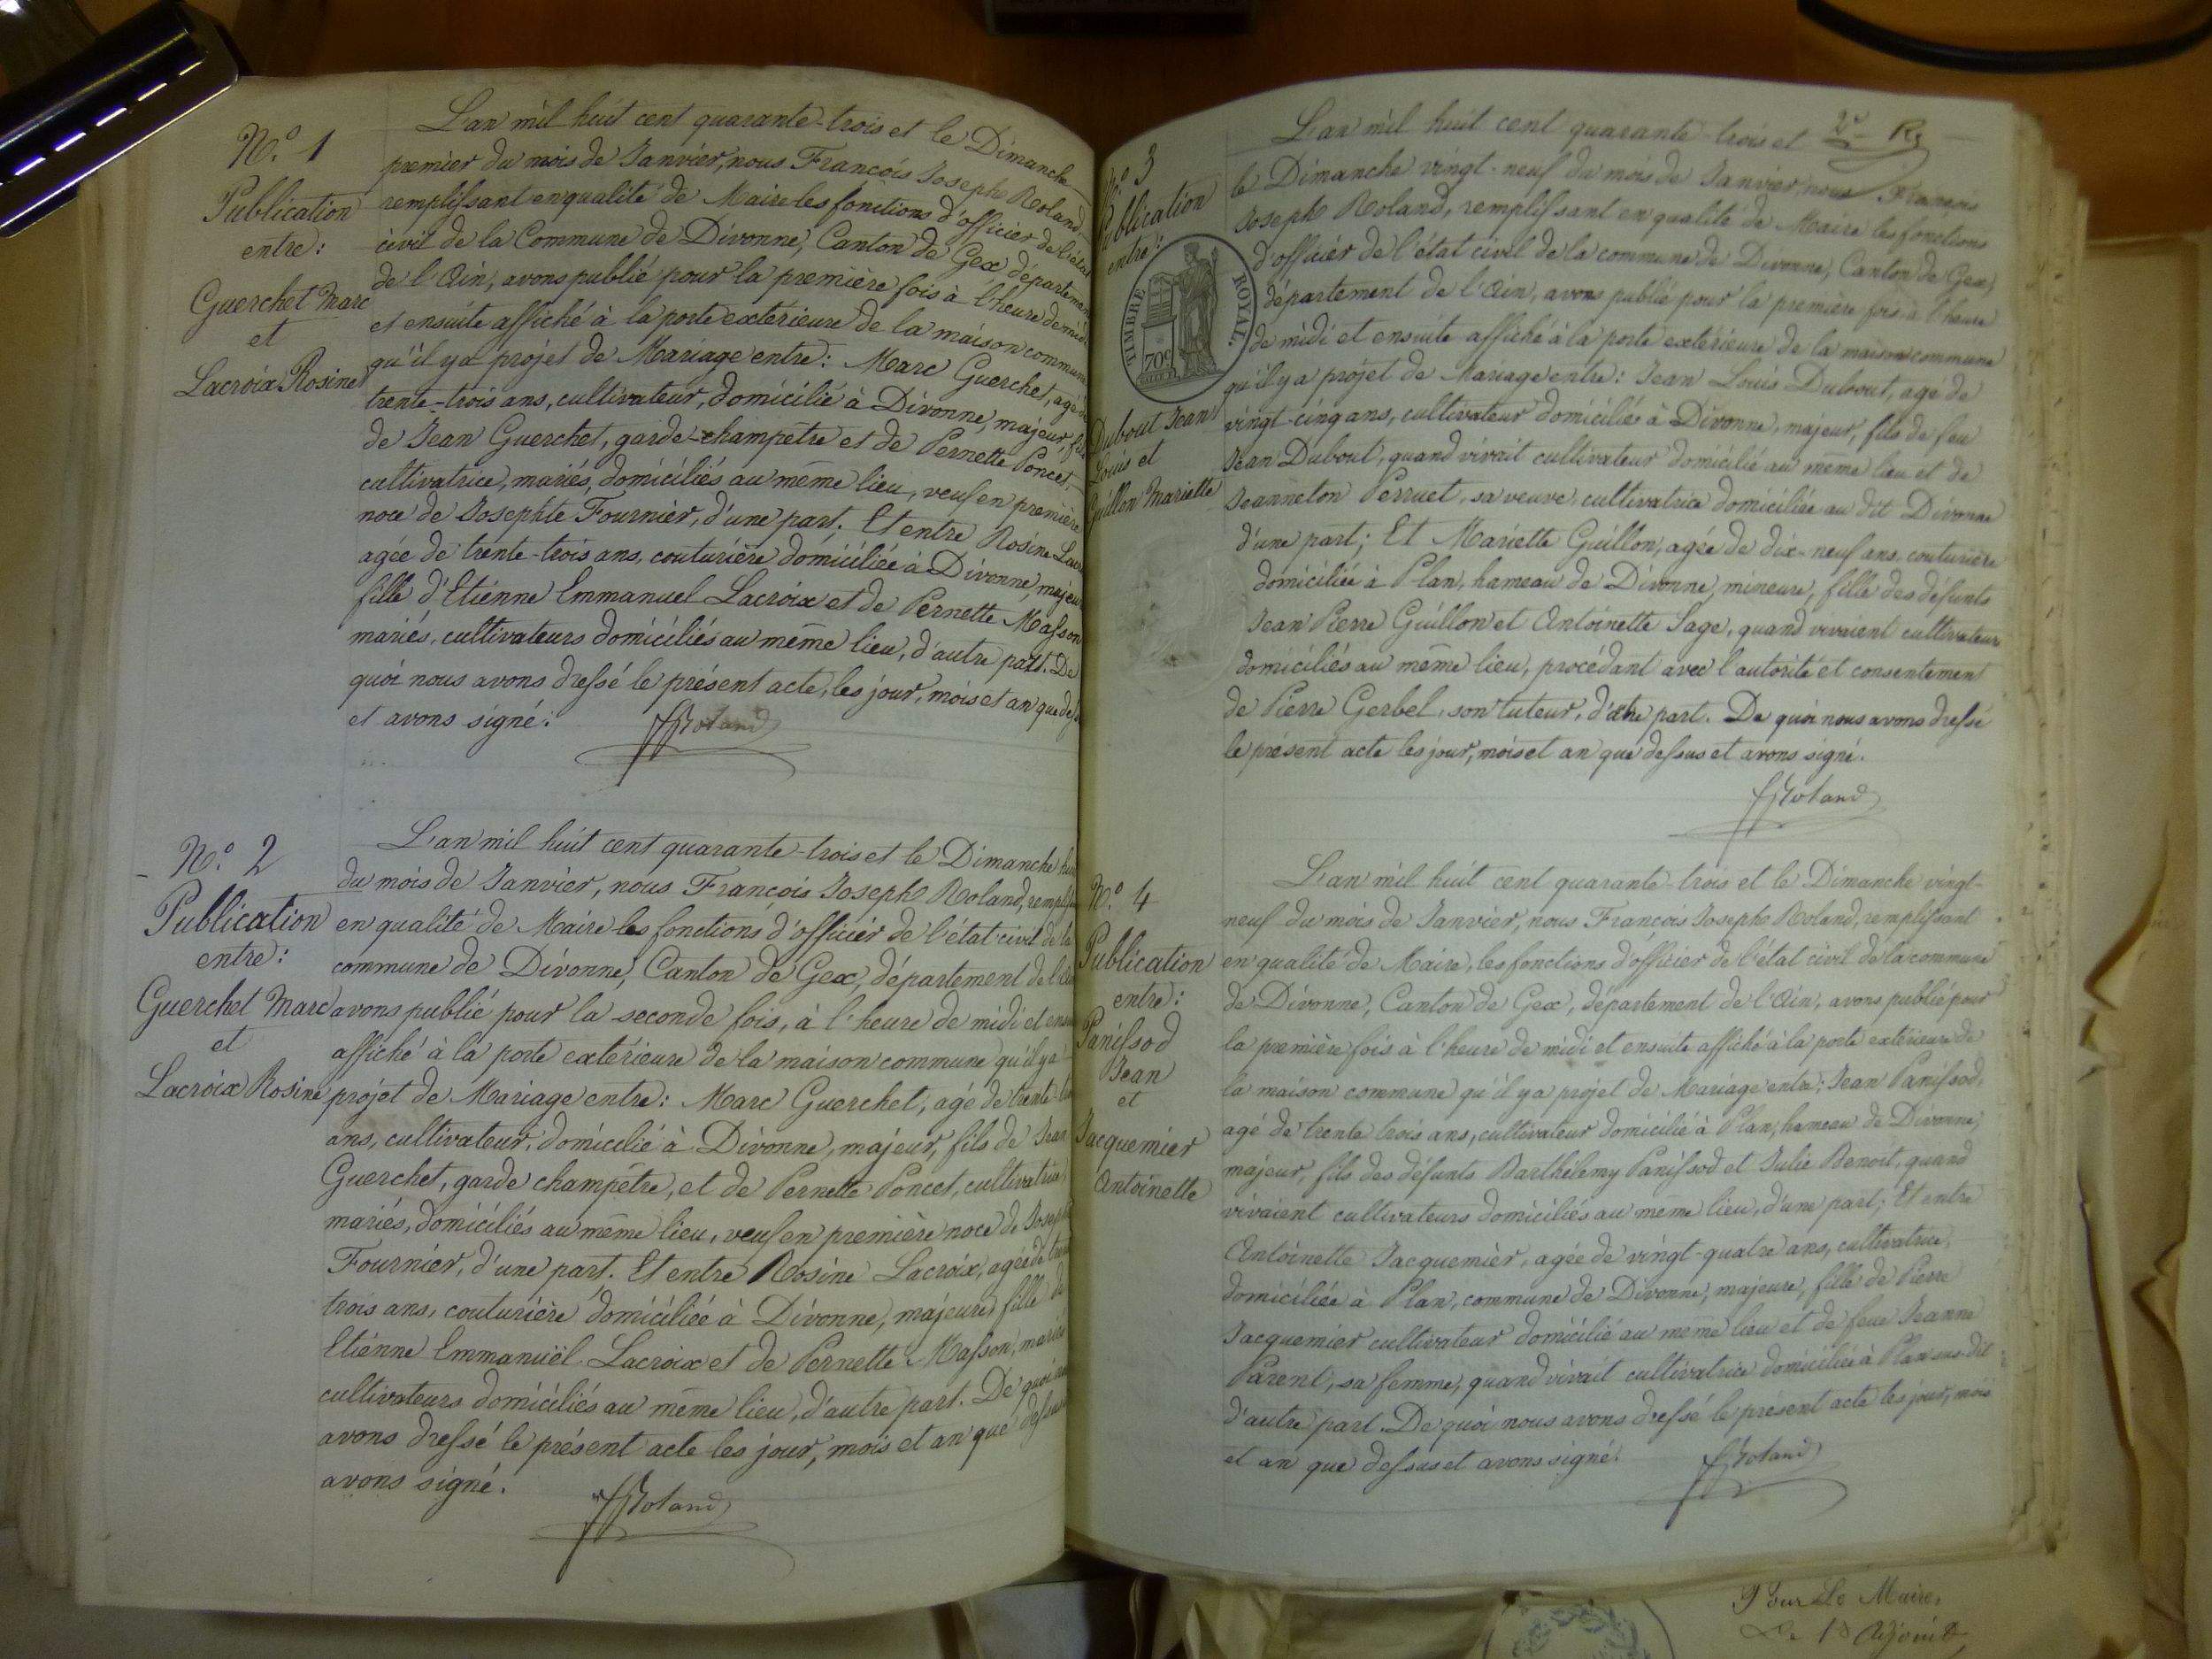 N.o 1
Publication
entre:
Guerchet Marc
et
Lacroix Rosine
L'an mil huit cent quarante-trois et le Dimanche
premier du mois de Janvier, nous François Joseph Roland
remplissant en qualité de Maire les fonctions d'officier de l'état
civil de la Commune de Divonne, Canton de Gex, département
de l'Ain, avons publié pour la première fois à l'heure de midi
et ensuite affiché à la porte extérieure de la maison commune
qu'il y a projet de Mariage entre: Marc Guerchet, agé de
trente-trois ans, cultivateur, domicilié à Divonne, majeur, fils
de Jean Guerchet, garde-champêtre et de Pernette Poncet,
cultivatrice, mariés, domiciliés au même lieu, veuf en première
noce de Josephte Fournier, d'une part; Et entre Rosine Lacr
agée de trente-trois ans, couturière domiciliée à Divonne, majeu
fille d'Etienne Emmanuel Lacroix et de Pernette Masson
mariés, cultivateurs domiciliés au même lieu, d'autre part. De
quoi nous avons dressé le présent acte, les jour, mois et an que des
et avons signé.
FJRoland
N.o 2
Publication
entre:
Guerchet Marc
et
Lacroix Rosine
L'an mil huit cent quarante-trois et le Dimanche hui
du mois de Janvier, nous François Joseph Roland, remplis
en qualité de Maire les fonctions d'officier de l'état civil de la
commune de Divonne, Canton de Gex, département de l'Ain
avons publié pour la seconde fois, à l'heure de midi et ensu
affiché à la porte extérieure de la maison commune qu'il y a
projet de Mariage entre: Marc Guerchet, agé de trente-tr
ans, cultivateur, domicilié à Divonne, majeur, fils de Jean
Guerchet, garde champêtre, et de Pernette Poncet, cultivatrice
mariés, domiciliés au même lieu, veuf en première noce de Joseph
Fournier, d'une part. Et entre Rosine Lacroix, agée de trent
trois ans, couturière domiciliée à Divonne, majeure, fille de
Etienne Emmanuël Lacroix et de Pernette Masson, mariés
cultivateurs domiciliés au même lieu, d'autre part. De quoi
avons dressé le présent acte les jour, mois et an que dessus
avons signé.
FJRoland
N.o 3
Publication
entre:
TIMBRE ROYAL.
70c
Dubout Jean
Louis et
Guillon Mariette
L'an mil huit cent quarante-trois et
le Dimanche vingt-neuf du mois de Janvier nous François
Joseph Roland, remplissant en qualité de Maire les fonctions
d'officier de l'état civil de la commune de Divonne, Canton de Gex,
département de l'Ain, avons publié pour la première fois à l'heure
de midi et ensuite affiché à la porte extérieure de la maison commune
qu'il y a projet de Mariage entre: Jean Louis Dubout, agé de
vingt-cinq ans, cultivateur domicilié à Divonne, majeur, fils de feu
Jean Dubout, quand vivait cultivateur domicilié au même lieu et de
Jeanneton Perruet, sa veuve, cultivatrice domiciliée au dit Divonne
d'une part; Et Mariette Guillon, agée de dix-neuf ans, couturière
domiciliée à Plan, hameau de Divonne, mineure, fille des défunts
Jean Pierre Guillon et Antoinette Sage, quand vivaient cultivateurs
domiciliés au même lieu, procédant avec l'autorité et consentement
de Pierre Gerbel, son tuteur, d'autre part. De quoi nous avons dressé
le présent acte les jour, mois et an que dessus et avons signé.
FJRoland
N.o 4
Publication
entre:
Panissod
Jean
et
Jacquemier
Antoinette
L'an mil huit cent quarante-trois et le Dimanche vingt-
neuf du mois de Janvier, nous François Joseph Roland, remplissant
en qualité de Maire, les fonctions d'officier de l'état civil de la commune
de Divonne, Canton de Gex, département de l'Ain, avons publié pour
la première fois à l'heure de midi et ensuite affiché à la porte extérieure de
la maison commune qu'il y a projet de Mariage entre: Jean Panissod,
agé de trente trois ans, cultivateur domicilié à Plan, hameau de Divonne,
majeur, fils des défunts Barthélemy Panissod et Julie Benoit, quand
vivaient cultivateurs domiciliés au même lieu, d'une part; Et entre
Antoinette Jacquemier, agée de vingt-quatre ans, cultivatrice,
domiciliée à Plan, commune de Divonne, majeure, fille de Pierre
Jacquemier cultivateur domicilié au même lieu et de feue Jeanne
Parent, sa femme, quand vivait cultivatrice domiciliée à Plan sus-dit
d'autre part. De quoi nous avons dressé le présent acte les jour, mois
et an que dessus et avons signé.
FJRoland
Pour Le Maire,